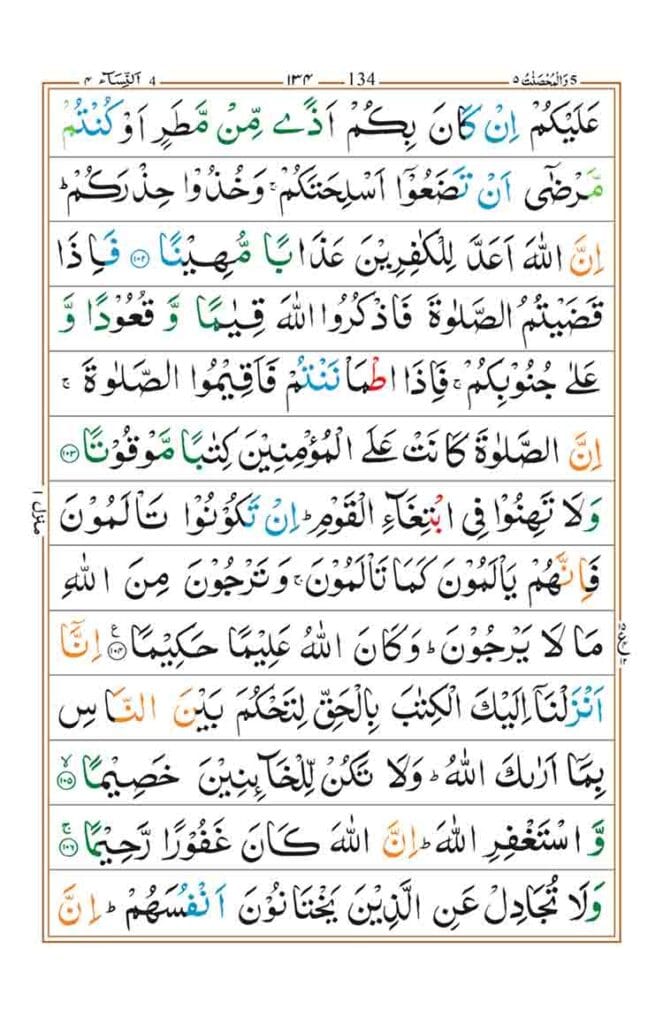 وَالْمُحْصَنٰتُ ٥ 5 134 ١٣٤ 4 اَلنِّسَآء ٤
عَلَيْكُمْ اِنْ كَانَ بِكُمْ اَذًى مِّنْ مَّطَرٍ اَوْ كُنْتُمْ
مَّرْضٰۤى اَنْ تَضَعُوْۤا اَسْلِحَتَكُمْ ۚ وَخُذُوْا حِذْرَكُمْ ؕ
اِنَّ اللّٰهَ اَعَدَّ لِلْكٰفِرِيْنَ عَذَابًا مُّهِيْنًا ۝١٠٢ فَاِذَا
قَضَيْتُمُ الصَّلٰوةَ فَاذْكُرُوا اللّٰهَ قِيٰمًا وَّ قُعُوْدًا وَّ
عَلٰى جُنُوْبِكُمْ ۚ فَاِذَا اطْمَاْنَنْتُمْ فَاَقِيْمُوا الصَّلٰوةَ ۚ
اِنَّ الصَّلٰوةَ كَانَتْ عَلَى الْمُؤْمِنِيْنَ كِتٰبًا مَّوْقُوْتًا ۝١٠٣
وَلَا تَهِنُوْا فِى ابْتِغَآءِ الْقَوْمِ ؕ اِنْ تَكُوْنُوْا تَاْلَمُوْنَ
فَاِنَّهُمْ يَاْلَمُوْنَ كَمَا تَاْلَمُوْنَ ۚ وَ تَرْجُوْنَ مِنَ اللّٰهِ
مَا لَا يَرْجُوْنَ ؕ وَكَانَ اللّٰهُ عَلِيْمًا حَكِيْمًا ۝١٠٤ ع اِنَّاۤ
اَنْزَلْنَاۤ اِلَيْكَ الْكِتٰبَ بِالْحَقِّ لِتَحْكُمَ بَيْنَ النَّاسِ
بِمَاۤ اَرٰىكَ اللّٰهُ ؕ وَلَا تَكُنْ لِّلْخَآئِنِيْنَ خَصِيْمًا ۝١٠٥ ۙ
وَّ اسْتَغْفِرِ اللّٰهَ ؕ اِنَّ اللّٰهَ كَانَ غَفُوْرًا رَّحِيْمًا ۝١٠٦ ۚ
وَلَا تُجَادِلْ عَنِ الَّذِيْنَ يَخْتَانُوْنَ اَنْفُسَهُمْ ؕ اِنَّ
منزل ١